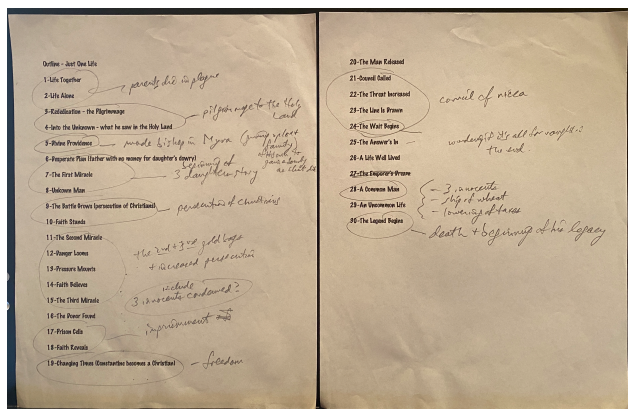 Outline - Just One Life
1-Life Together
parents died in plague
2-Life Alone
3-Rededication - the Pilgrimage
pilgrimage to the Holy Land
4-Into the Unknown - what he saw in the Holy Land
5-Divine Providence
made bishop in Myra
6-Desperate Plan (father with no money for daughter's dowry)
beginning of
3 daughters story
7-The First Miracle
8-Unknown Man
9-The Battle Grows (persecution of Christians)
persecution of Christians
10-Faith Stands
11-The Second Miracle
the 2nd + 3rd gold bags
+ increased persecution
12-Danger Looms
13-Pressure Mounts
14-Faith Believes
include
3 innocents condemned?
15-The Third Miracle
16-The Donor Found
17-Prison Cells
imprisonment
18-Faith Reveals
19-Changing Times (Constantine becomes a Christian)
- freedom
20-The Man Released
21-Council Called
22-The Threat Increased
council of nicea
23-The Line Is Drawn
24-The Wait Begins
25-The Answer's In
wondering if it's all for naught in
the end
26-A Life Well Lived
27-The Emperor's Dream
28-A Common Man
- 3 innocents
- ship of wheat
- lowering of taxes
29-An Uncommon Life
30-The Legend Begins
death + beginning of his legacy